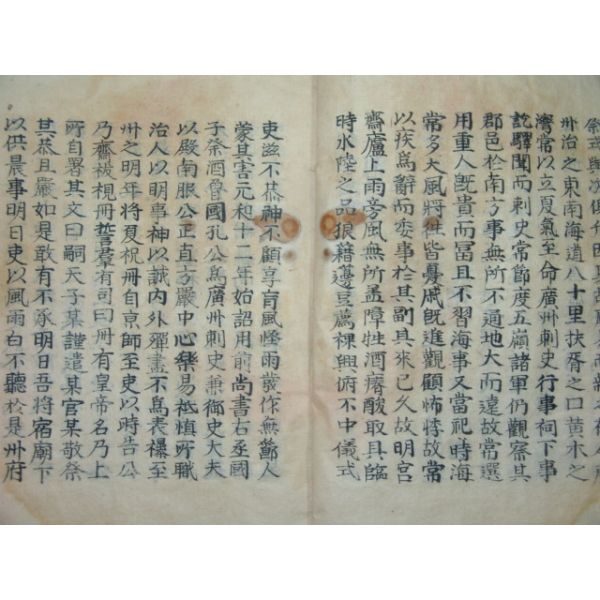 祭式與次俱升因其故廟易而新之在今廣
州治之東南海道八十里扶胥之口黃木之
灣常以立夏氣至命廣州刺史行事祠下事
訖驛聞而刺史常節度五嶺諸軍仍觀察其
郡邑於南方事無所不通地大而遠故常選
用重人既貴而冨且不習海事又當祀時海
常多大風將徃皆憂戚既進觀顧怖悸故常
以疾爲辭而委事於其副其来已久故明宮
齋廬上雨旁風無所盖障牲酒瘠酸取具臨
時水陸之品狼藉籩豆薦祼興俯不中儀式
吏滋不恭神不顧享盲風恠雨發作無節人
蒙其害元和十二年始詔用前尚書右丞國
子祭酒魯國孔公爲廣州刺史兼御史大夫
以殿南服公正直方嚴中心樂易祗慎所職
治人以明事神以誠內外殫盡不爲表襮至
州之明年將夏祝冊自京師至吏以時告公
乃齋祓視冊誓羣有司曰冊有皇帝名乃上
所自署其文曰嗣天子某謹遣某官某敬祭
其恭且嚴如是敢有不承明日吾將宿廟下
以供晨事明日吏以風雨白不聽於是州府